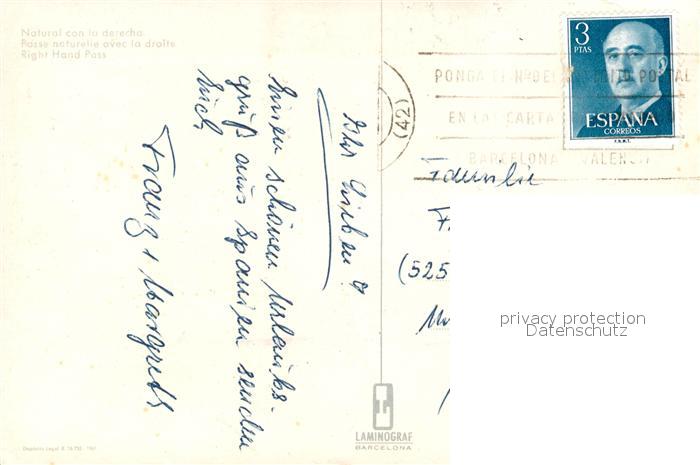 Natural con la derecha
Passe naturelle avec la droite
Right Hand Pass
Ihr Lieben!
Einen schönen Urlaubs-
gruß aus Spanien senden
Euch
Franz + Margreth
Depósito Legal B. 16.755 - 1961
LAMINOGRAF
BARCELONA
(42)
PONGA EL Nº DEL DISTRITO POSTAL
EN LAS CARTAS
BARCELONA VALENCIA
3
PTAS
ESPAÑA
CORREOS
F.N.M.T.
Familie
(525
privacy protection
Datenschutz